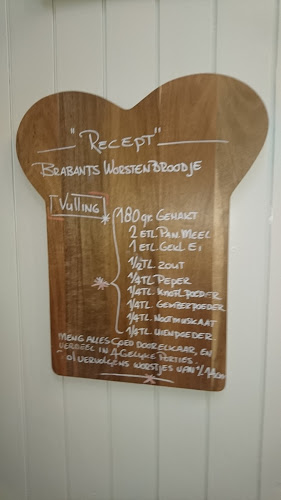 "RECEPT"
BRABANTS WORSTENBROODJE
VULLING
180 gr. GEHAKT
2 ETL. PAN. MEEL
1 ETL. GEKL. EI
1/2 TL. ZOUT
1/4 TL. PEPER
1/4 TL. KNOFL. POEDER
1/4 TL. GEMBERPOEDER
1/4 TL. NOOTMUSKAAT
1/4 TL. UIENPOEDER
MENG ALLES GOED DOORELKAAR, EN
VERDEEL IN 4 GELIJKE PORTIES.
VERVOLGENS WORSTJES VAN 14cm